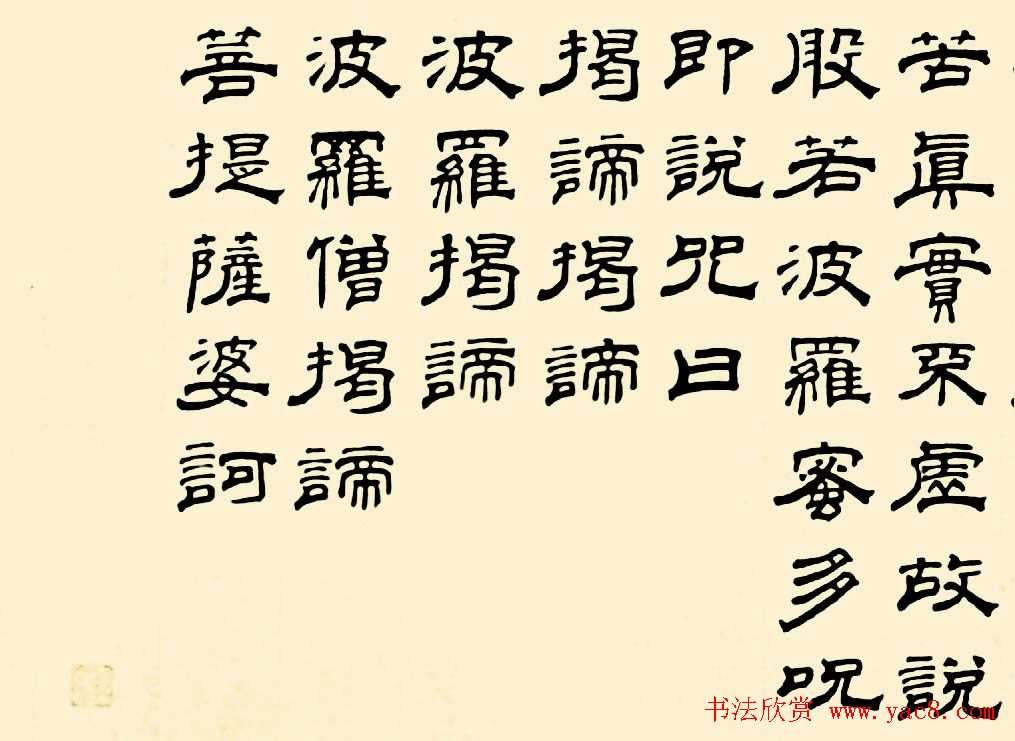 苦真實不虛故說
般若波羅蜜多呪
即說咒曰
揭諦揭諦
波羅揭諦
波羅僧揭諦
菩提薩婆訶
书法欣赏 www.yac8.com